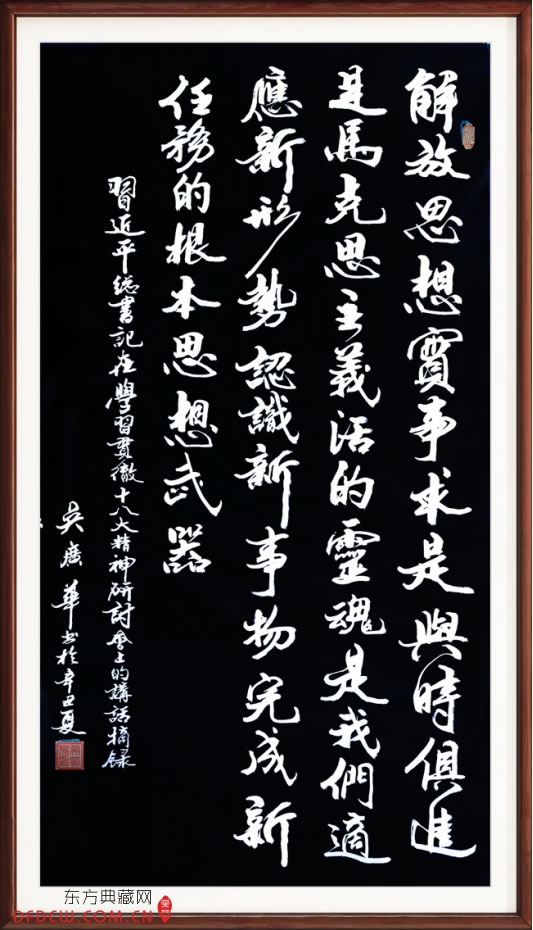 解放思想實事求是與時俱進
是馬克思主義活的靈魂是我們適
應新形勢認識新事物完成新
任務的根本思想武器
習近平總書記在學習貫徹十八大精神研討會上的講話摘錄
吳廣華書於辛丑夏
东方典藏网
DFDCW.COM.CN